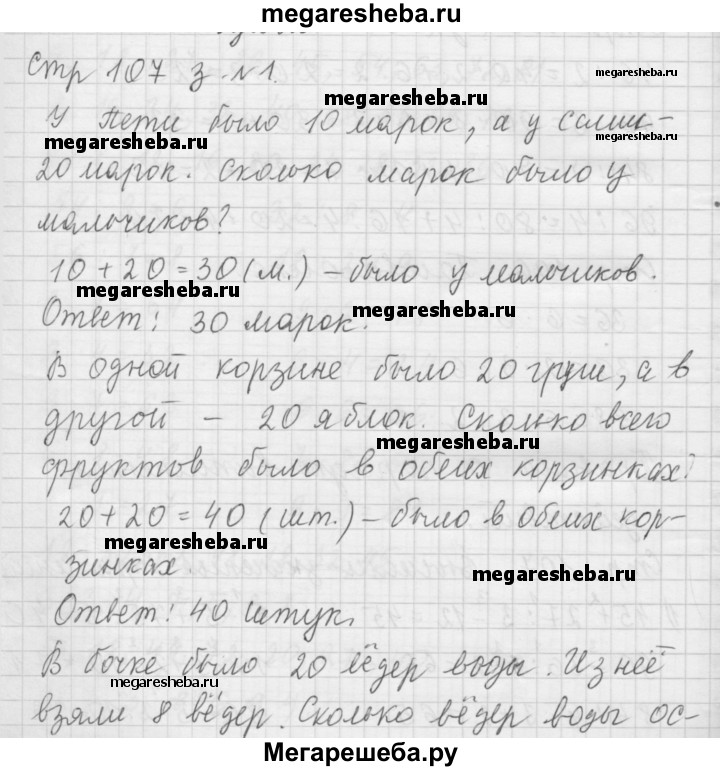 megaresheba.ru
Стр 107 з. №1.
megaresheba.ru
megaresheba.ru
У Пети было 10 марок, а у Саши -
megaresheba.ru
megaresheba.ru
20 марок. Сколько марок было у
мальчиков?
10 + 20 = 30 (м.) - было у мальчиков.
megaresheba.ru
megaresheba.ru
Ответ: 30 марок.
В одной корзине было 20 груш, а в
другой - 20 яблок. Сколько всего
megaresheba.ru
фруктов было в обеих корзинках?
20 + 20 = 40 (шт.) - было в обеих кор-
megaresheba.ru
зинках.
megaresheba.ru
Ответ: 40 штук.
В бочке было 20 вёдер воды. Из неё
megaresheba.ru
взяли 8 вёдер. Сколько вёдер воды ос-
megaresheba.ru
Мегарешеба.ру